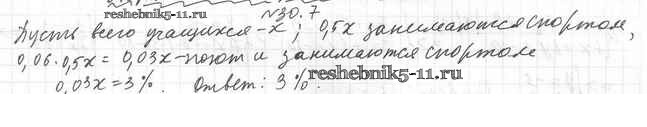 reshebnik5-11.ru
№30.7
Пусть всего учащихся - x; 0,5x занимаются спортом,
0,06·0,5x = 0,03x - поют и занимаются спортом
0,03x = 3%. Ответ: 3%.
reshebnik5-11.ru